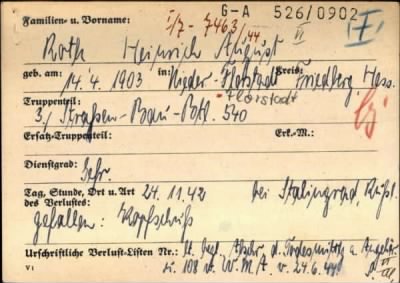 G-A 526/0902
Familien- u. Vorname: I/7-7463/44 II
Roth Heinrich August
geb. am: 14. 4. 1903 in: Nieder-Florstadt Kreis: Friedberg, Hess.
Truppenteil: -Florstadt
3./ Straßen-Bau-Btl. 540
Ersatz-Truppenteil: Erk.-M.:
Dienstgrad:
Gefr.
Tag, Stunde, Ort u. Art 24. 11. 42 bei Stalingrad, Rußl.
des Verlustes:
gefallen: Kopfschuß
Urschriftliche Verlust-Listen Nr.: lt. begl. Abschr. d. Todesmitt. a. Angehör.
108 v. W.M.A. v. 24.6.44
V I